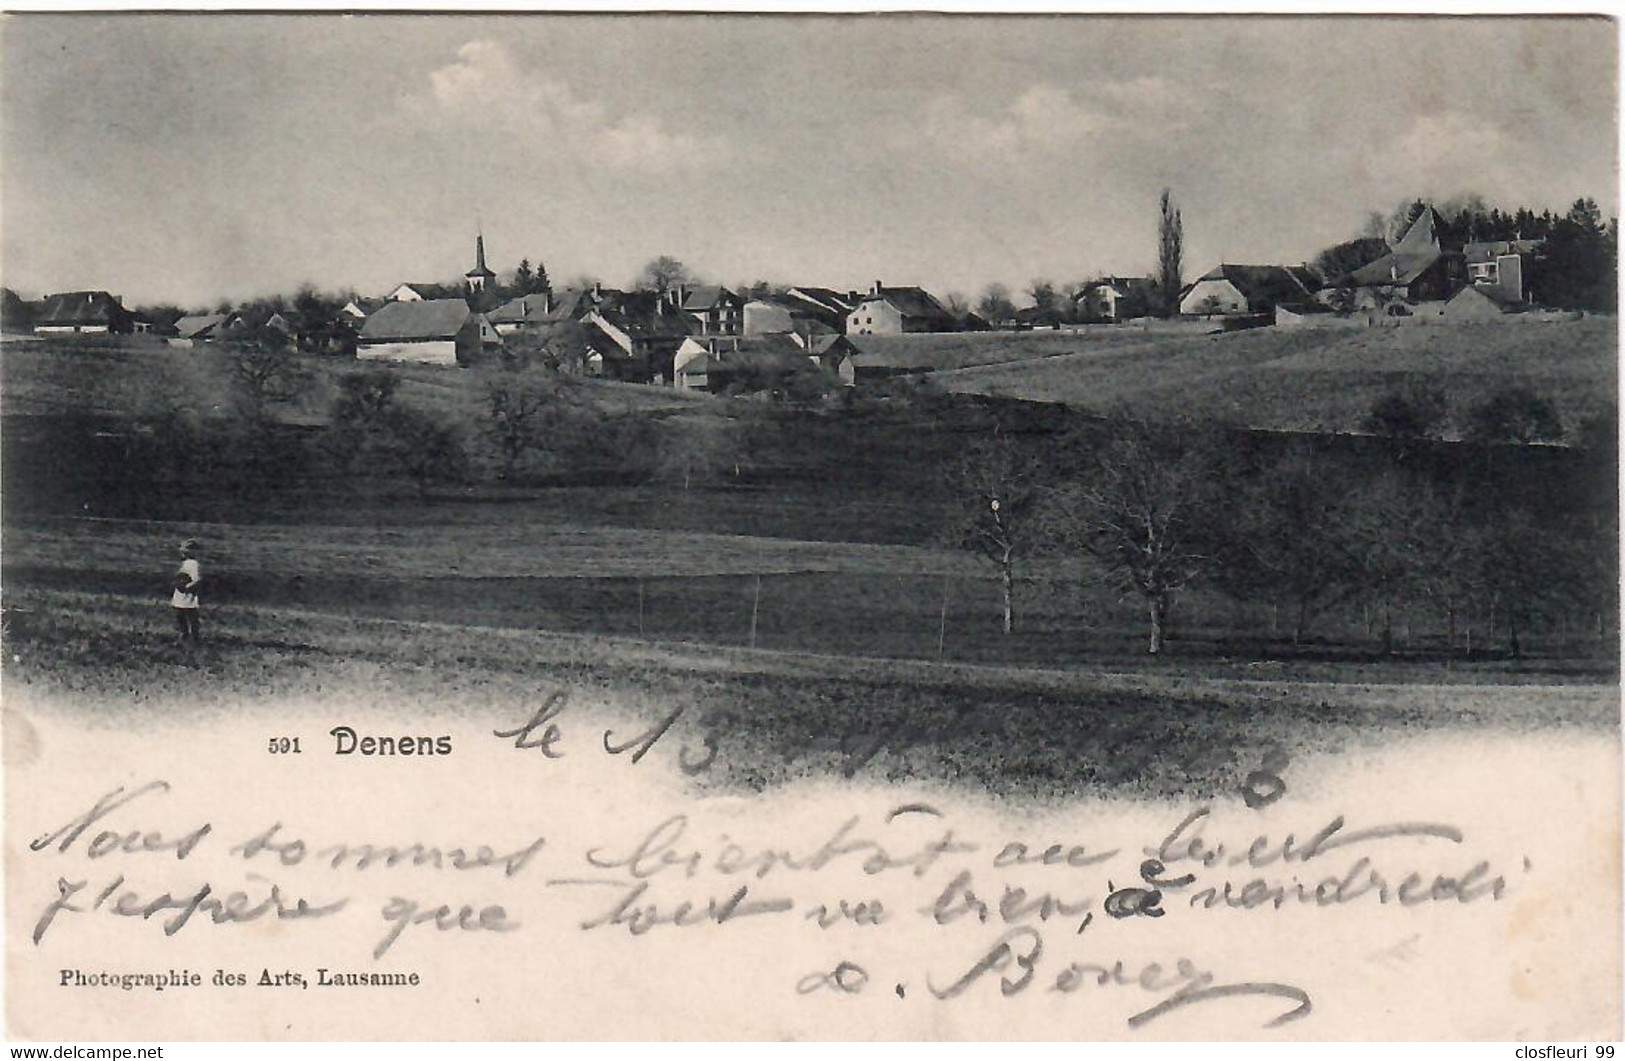 591 Denens
le 13
3
Nous sommes bientôt au bout
J'espère que tout va bien, à vendredi
Photographie des Arts, Lausanne
www.delcampe.net
closfleuri 99